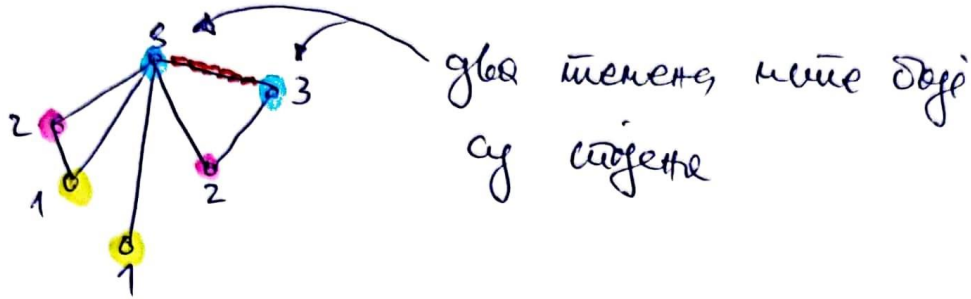 5
3
2
1
2
1
два темена исте боје
су спојена